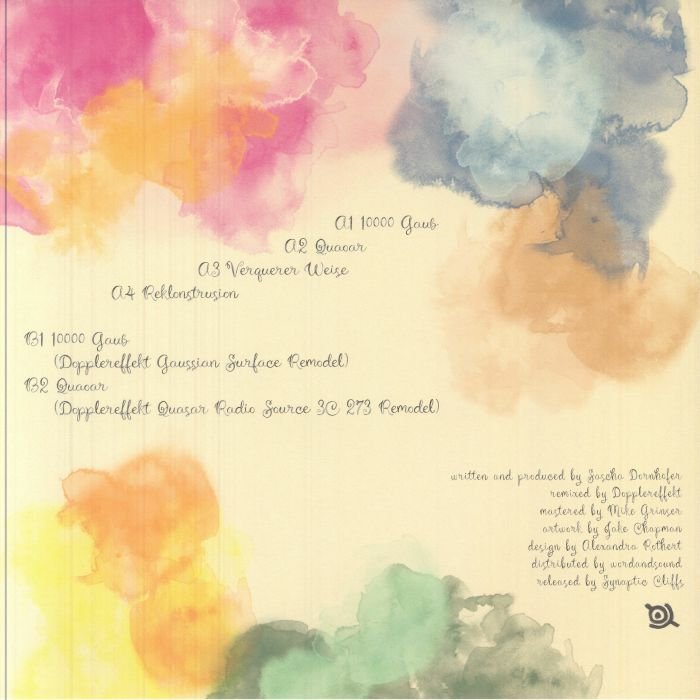 A1 10000 Gauß
A2 Quaoar
A3 Verquerer Weise
A4 Reklonstrusion
B1 10000 Gauß
(Dopplereffekt Gaussian Surface Remodel)
B2 Quaoar
(Dopplereffekt Quasar Radio Source 3C 273 Remodel)
written and produced by Sascha Dornhöfer
remixed by Dopplereffekt
mastered by Mike Grinser
artwork by Jake Chapman
design by Alexandra Rothert
distributed by wordandsound
released by Synaptic Cliffs